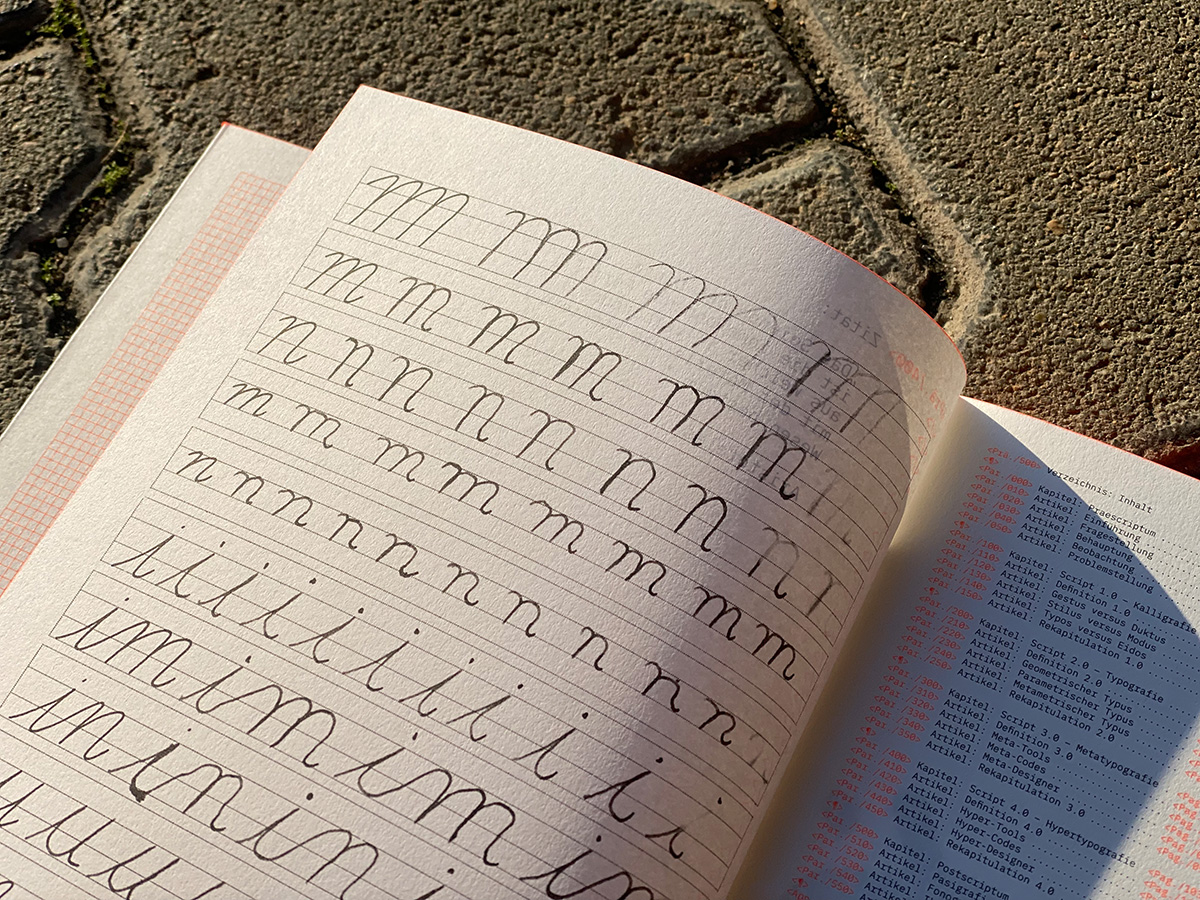 m m m
m m m m m m
n n n n n n n n
m m m m m m m m
n n n n n n n n n n
i i i i i i i i i i i
imimimim
ininin
u u u u
Zitat:
<Par./500> Verzeichnis: Inhalt
<¶>
<Par /000> Kapitel: Praescriptum
<Par /010> Artikel: Einführung
<Par /020> Artikel: Fragestellung
<Par /030> Artikel: Behauptung
<Par /040> Artikel: Beobachtung
<Par /050> Artikel: Problemstellung
<¶>
<Par /100> Kapitel: Script 1.0 – Kalligrafie
<Par /110> Artikel: Definition 1.0
<Par /120> Artikel: Gestus versus Duktus
<Par /130> Artikel: Stilus versus Modus
<Par /140> Artikel: Typos versus Eidos
<Par /150> Artikel: Rekapitulation 1.0
<¶>
<Par /200> Kapitel: Script 2.0 – Typografie
<Par /210> Artikel: Definition 2.0
<Par /220> Artikel: Geometrischer Typus
<Par /230> Artikel: Parametrischer Typus
<Par /240> Artikel: Metametrischer Typus
<Par /250> Artikel: Rekapitulation 2.0
<¶>
<Par /300> Kapitel: Script 3.0 – Metatypografie
<Par /310> Artikel: Definition 3.0
<Par /320> Artikel: Meta-Tools
<Par /330> Artikel: Meta-Codes
<Par /340> Artikel: Meta-Designer
<Par /350> Artikel: Rekapitulation 3.0
<¶>
<Par /400> Kapitel: Script 4.0 – Hypertypografie
<Par /410> Artikel: Definition 4.0
<Par /420> Artikel: Hyper-Tools
<Par /430> Artikel: Hyper-Codes
<Par /440> Artikel: Hyper-Designer
<Par /450> Artikel: Rekapitulation 4.0
<¶>
<Par /500> Kapitel: Postscriptum
<Par /510> Artikel: Pasigrafi
<Par /520> Artikel: Fonog
<Par /530> Artikel:
<Par /540> Artikel
<Par /550>